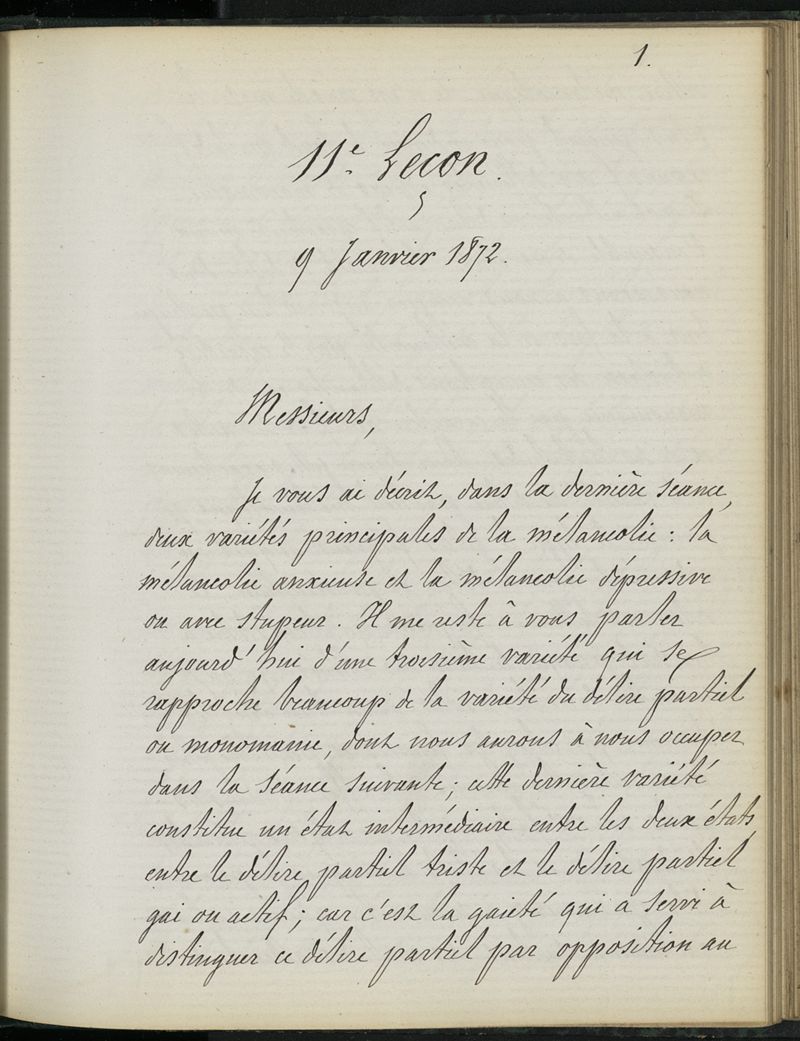 1.
11e Leçon.
9 Janvier 1872.
Messieurs,
Je vous ai décrit, dans la dernière séance,
deux variétés principales de la mélancolie : la
mélancolie anxieuse et la mélancolie dépressive
ou avec stupeur. Il me reste à vous parler
aujourd'hui d'une troisième variété qui se
rapproche beaucoup de la variété du délire partiel
ou monomanie, dont nous aurons à nous occuper
dans la séance suivante ; cette dernière variété
constitue un état intermédiaire entre les deux états,
entre le délire partiel triste et le délire partiel
gai ou actif ; car c'est la gaieté qui a servi à
distinguer ce délire partiel par opposition au